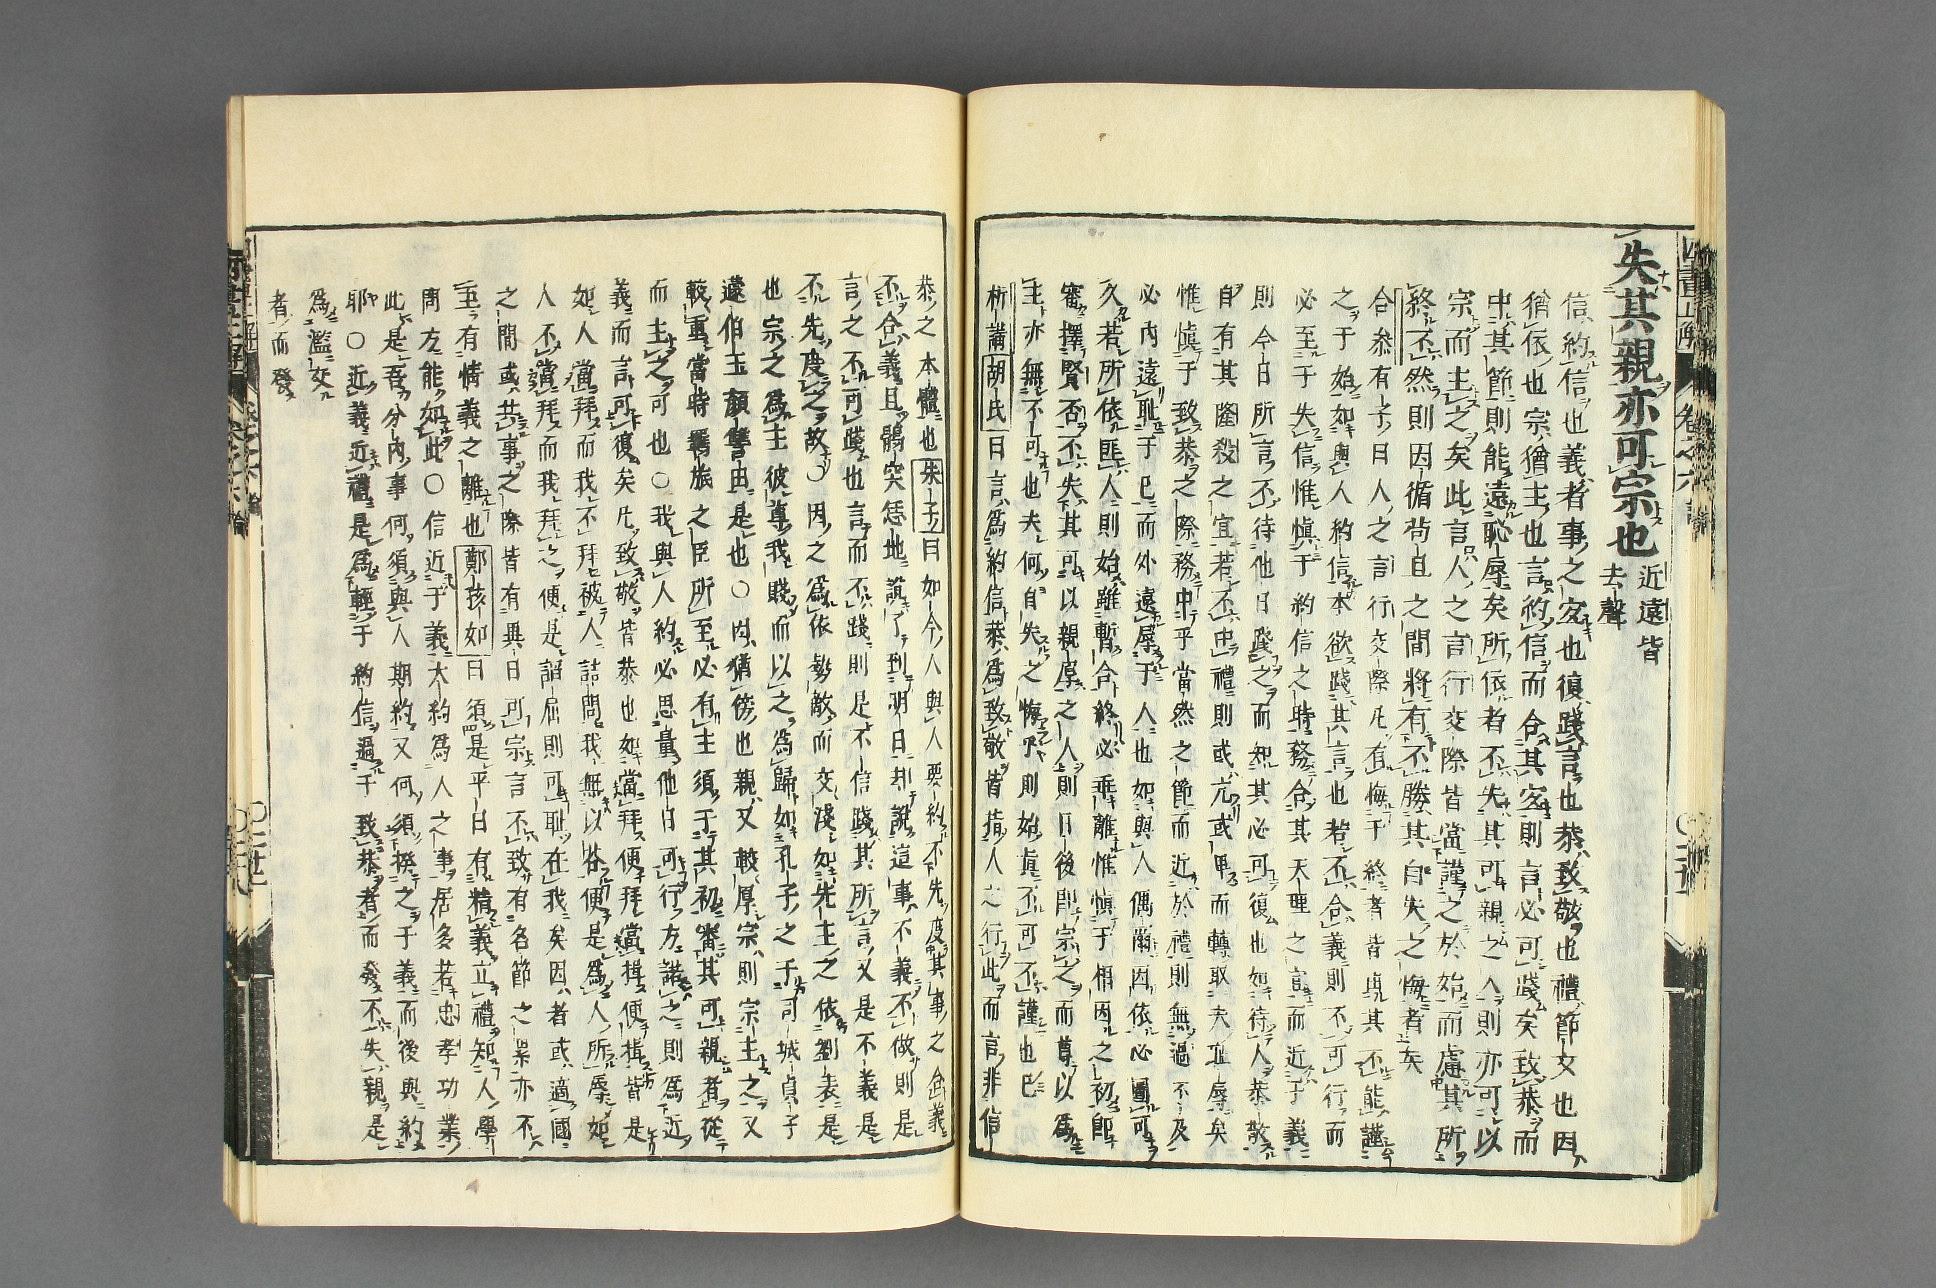 失其親亦可宗也
近遠皆
去聲
信約信也義者事之宜也復踐言也恭致敬也禮節文也因
猶依也宗猶主也言約信而合其宜則言必可踐矣致恭而
中其節則能遠恥辱矣所依者不失其可親之人則亦可以
宗而主之矣此言人之言行交際皆當謹之於始而慮其所
終不然則因循苟且之間將有不勝其自失之悔者矣
合參有子曰人之言行交際凡有悔于終者皆由其不能謹
之于始如與人約信本欲踐其言也若不合義則不可行而
必至于失信惟慎于約信之時務合其天理之宜而近于義
則今日所言不待他日踐之而知其必可復也如待人恭敬
自有其隆殺之宜若不中禮則或亢或卑而轉取夫恥辱矣
惟慎于致恭之際務中乎當然之節而近於禮則無過不及
必內遠耻于己而外遠辱于人也如與人偶爾因依必圖可
久若所依匪人則始雖暫合終必乖離惟慎于相因之初即
審擇賢否不失其可以親厚之人則日後即宗之而尊以為
主亦無不可也夫何自失之悔乎則始真不可不謹也已
析講胡氏曰言為約信恭為致敬皆指人之行此而言非信
恭之本體也朱子曰如今人與人要約不先度其事之合義
不合義且鶻突恁地說了到明日却說這事不義不做則是
言之不可踐也言而不踐則是不信踐其所言又是不義是
不先度之故○因之為依勢敵而交淺如先主之依劉表是
也宗之為主彼尊我賤而以之為歸如孔子之于司城貞子
蘧伯玉顏讐由是也○因猶傍也親又較厚宗則宗主之又
較重當時羈旅之臣所至必有主須于其初審其可親者從
而主之可也○我與人約必思量他日可行方諾之則為近
義而言可復矣凡致敬皆恭也如當拜便拜當揖便揖皆是
如人當拜而我不拜被人詰問我無以答便是為人所辱如
人不當拜而我拜之便是諂屈則可恥在我矣因者或適國
之間或共事之際皆有異日可宗言不致有名節之累亦不
至有情義之離也鄭孩如曰須是平日有精義立禮知人學
問方能如此○信近于義大約為人之事居多若忠孝功業
此是吾分內事何須與人期約又何須揆之于義而後與約
耶○近義近禮是為輕于約信過于致恭者而發不失親是
為濫交
者而發